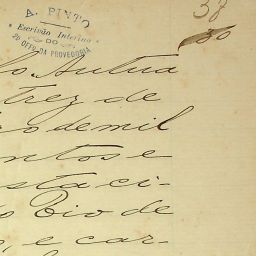 38
A. PINTO
Escrivão Interino
DO
2º OFF. DA PROVEDORIA
30
lo. Autua
trez de
ro de mil
entos e
esta ci-
o Rio de
o, e car-